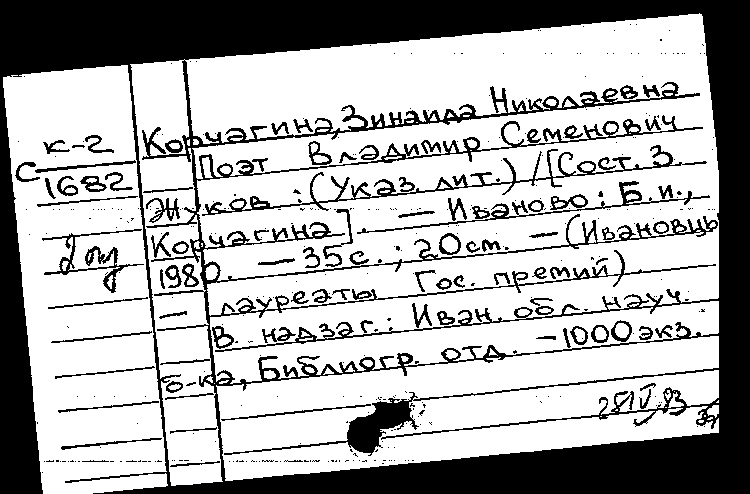 Корчагина, Зинаида Николаевна
К-2
С 1682
Поэт Владимир Семенович
Жуков : (Указ. лит.) / [Сост. З.
Корчагина]. — Иваново : Б.и.,
1980. — 35 с. ; 20 см. — (Ивановцы
— лауреаты Гос. премий).
В надзаг.: Иван. обл. науч.
б-ка, Библиогр. отд. — 1000 экз.